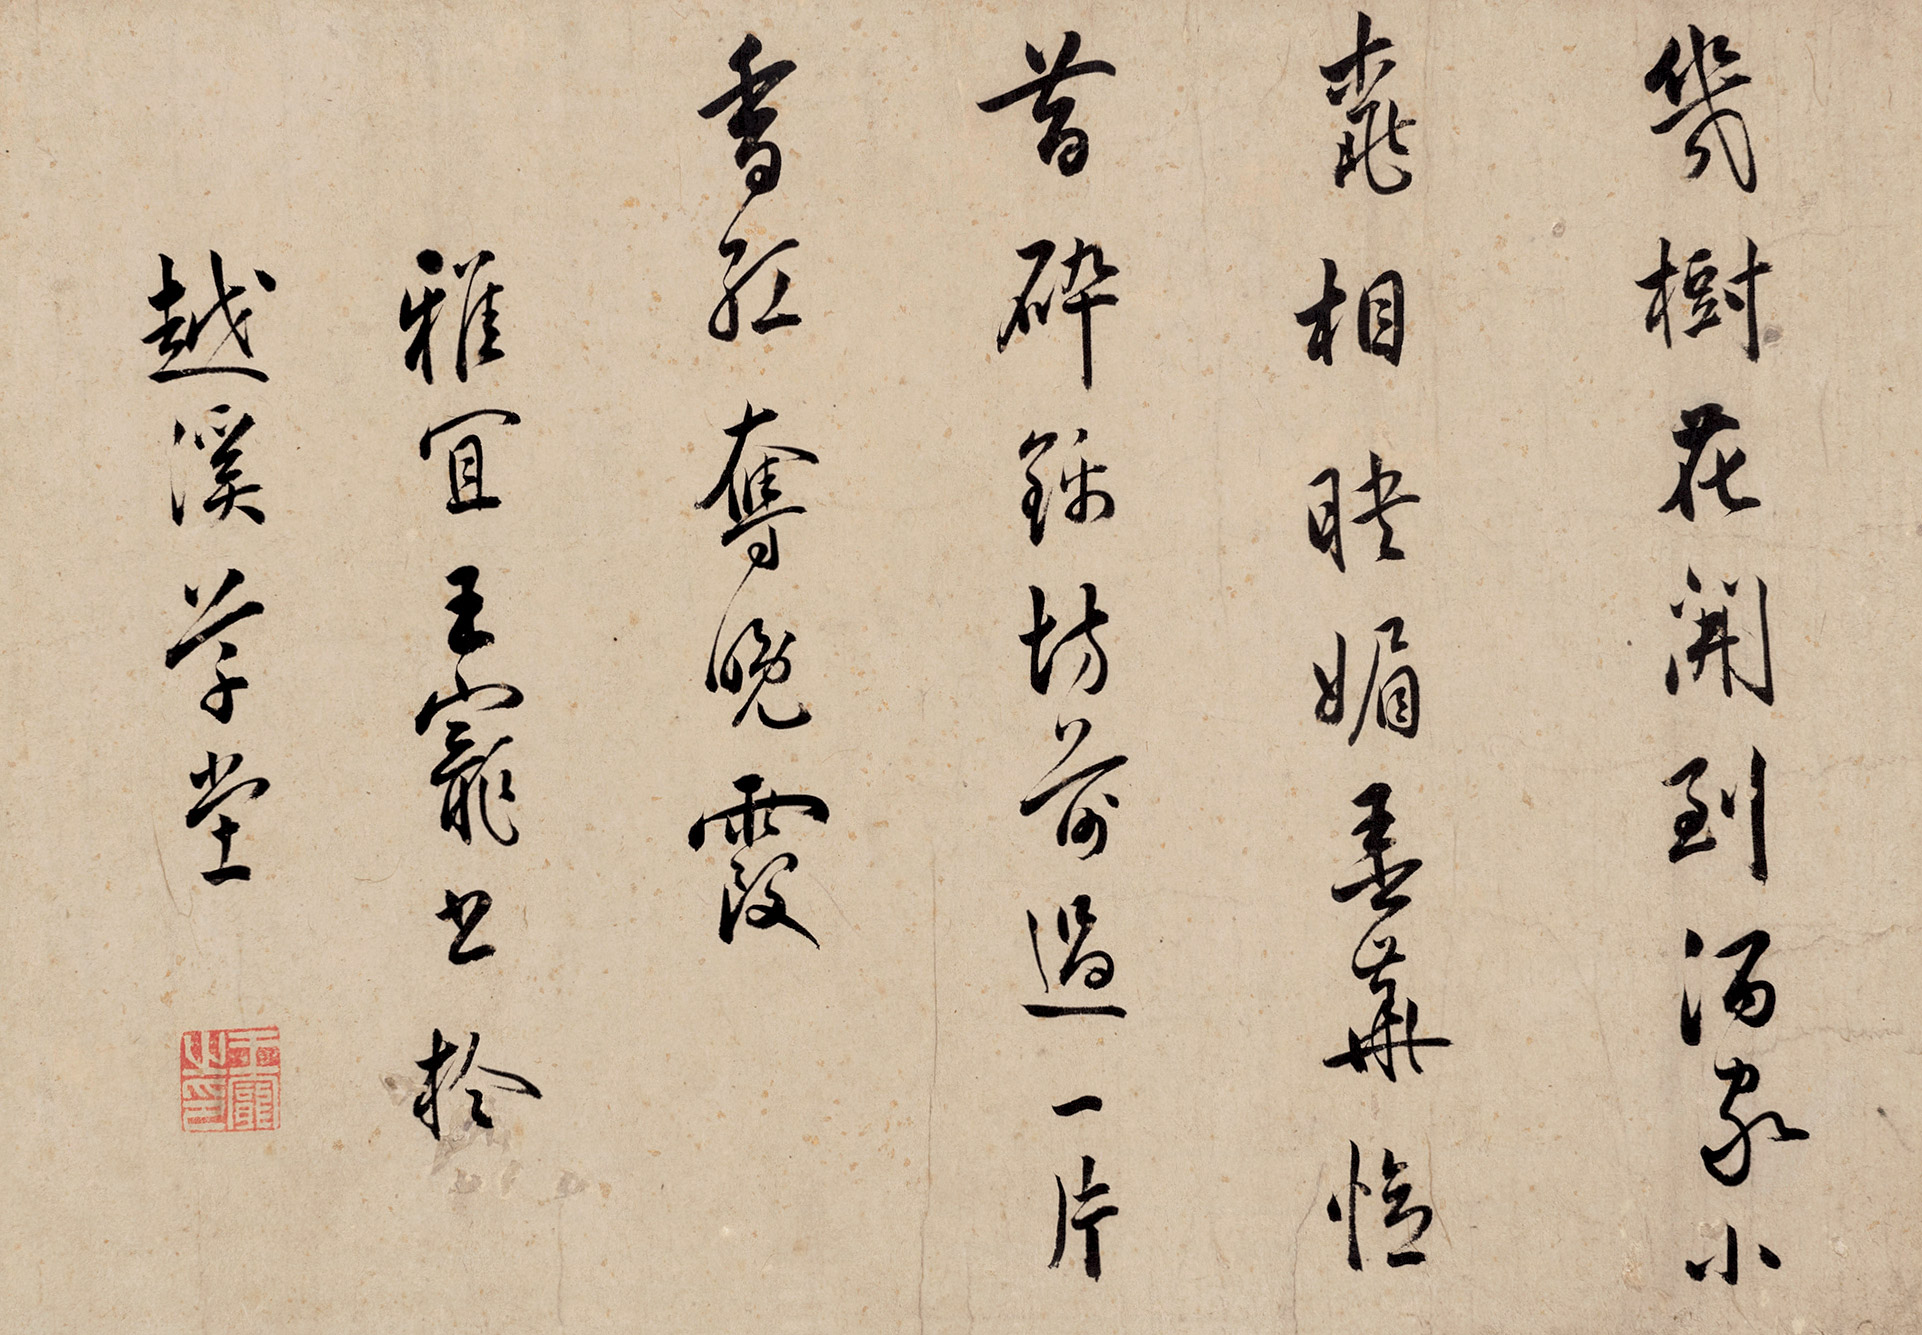 幾樹花開到酒家小
桃相映媚春華憶
昔碎錦坊前過一片
香紅奪晚霞
雅宜王寵書於
越溪草堂
王寵之印